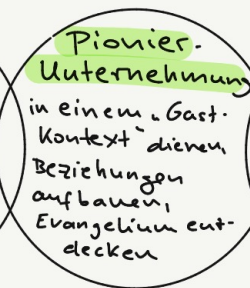 Pionier-
Unternehmung
in einem „Gast-
Kontext" dienen,
Beziehungen
aufbauen,
Evangelium ent-
decken